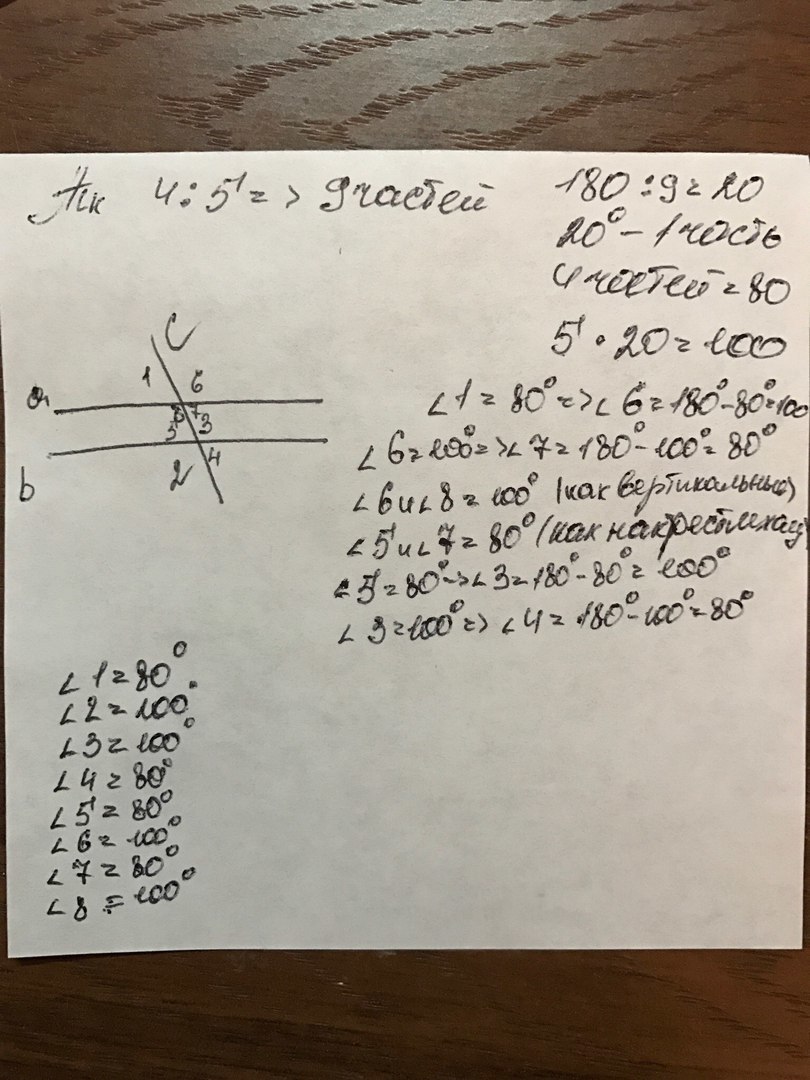 Тк 4:5 => 9 частей
180:9=20
20°-1 часть
4 частей=80
5·20=100
c
1 6
a
8 7
5 3
b 2 4
∠1=80°=>∠6=180°-80°=100
∠6=100°=>∠7=180°-100°=80°
∠6 и ∠8=100° (как вертикальные)
∠5 и ∠7=80° (как накрестлежащ
∠5=80°->∠3=180°-80°=100°
∠3=100°=>∠4=180°-100°=80°
∠1=80°
∠2=100°
∠3=100°
∠4=80°
∠5=80°
∠6=100°
∠7=80°
∠8=100°